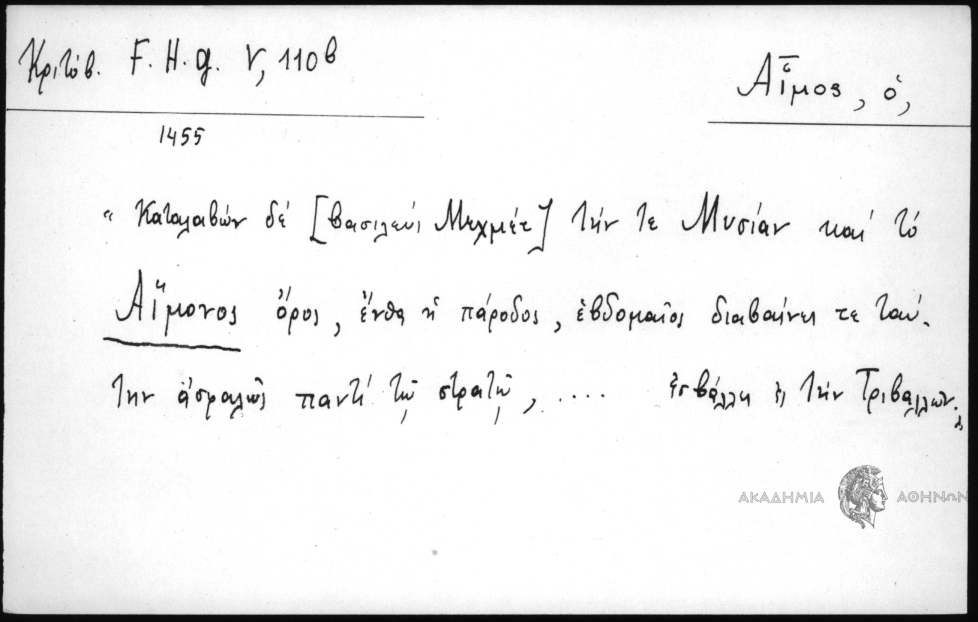 Κριτόβ. F. H. g. V, 110β
Αἷμος, ὁ,
1455
"Καταλαβών δέ [βασιλεύς Μεχμέτ] τήν τε Μυσίαν καί τό
Αἵμονος ὄρος, ἔνθα ἡ πάροδος, ἑβδομαῖος διαβαίνει τε ταύ.
την ἀσφαλῶς παντί τῷ στρατῷ, .... ἐσβάλλει ἐς τήν Τριβαλλῶν."
ΑΚΑΔΗΜΙΑ ΑΘΗΝΩΝ